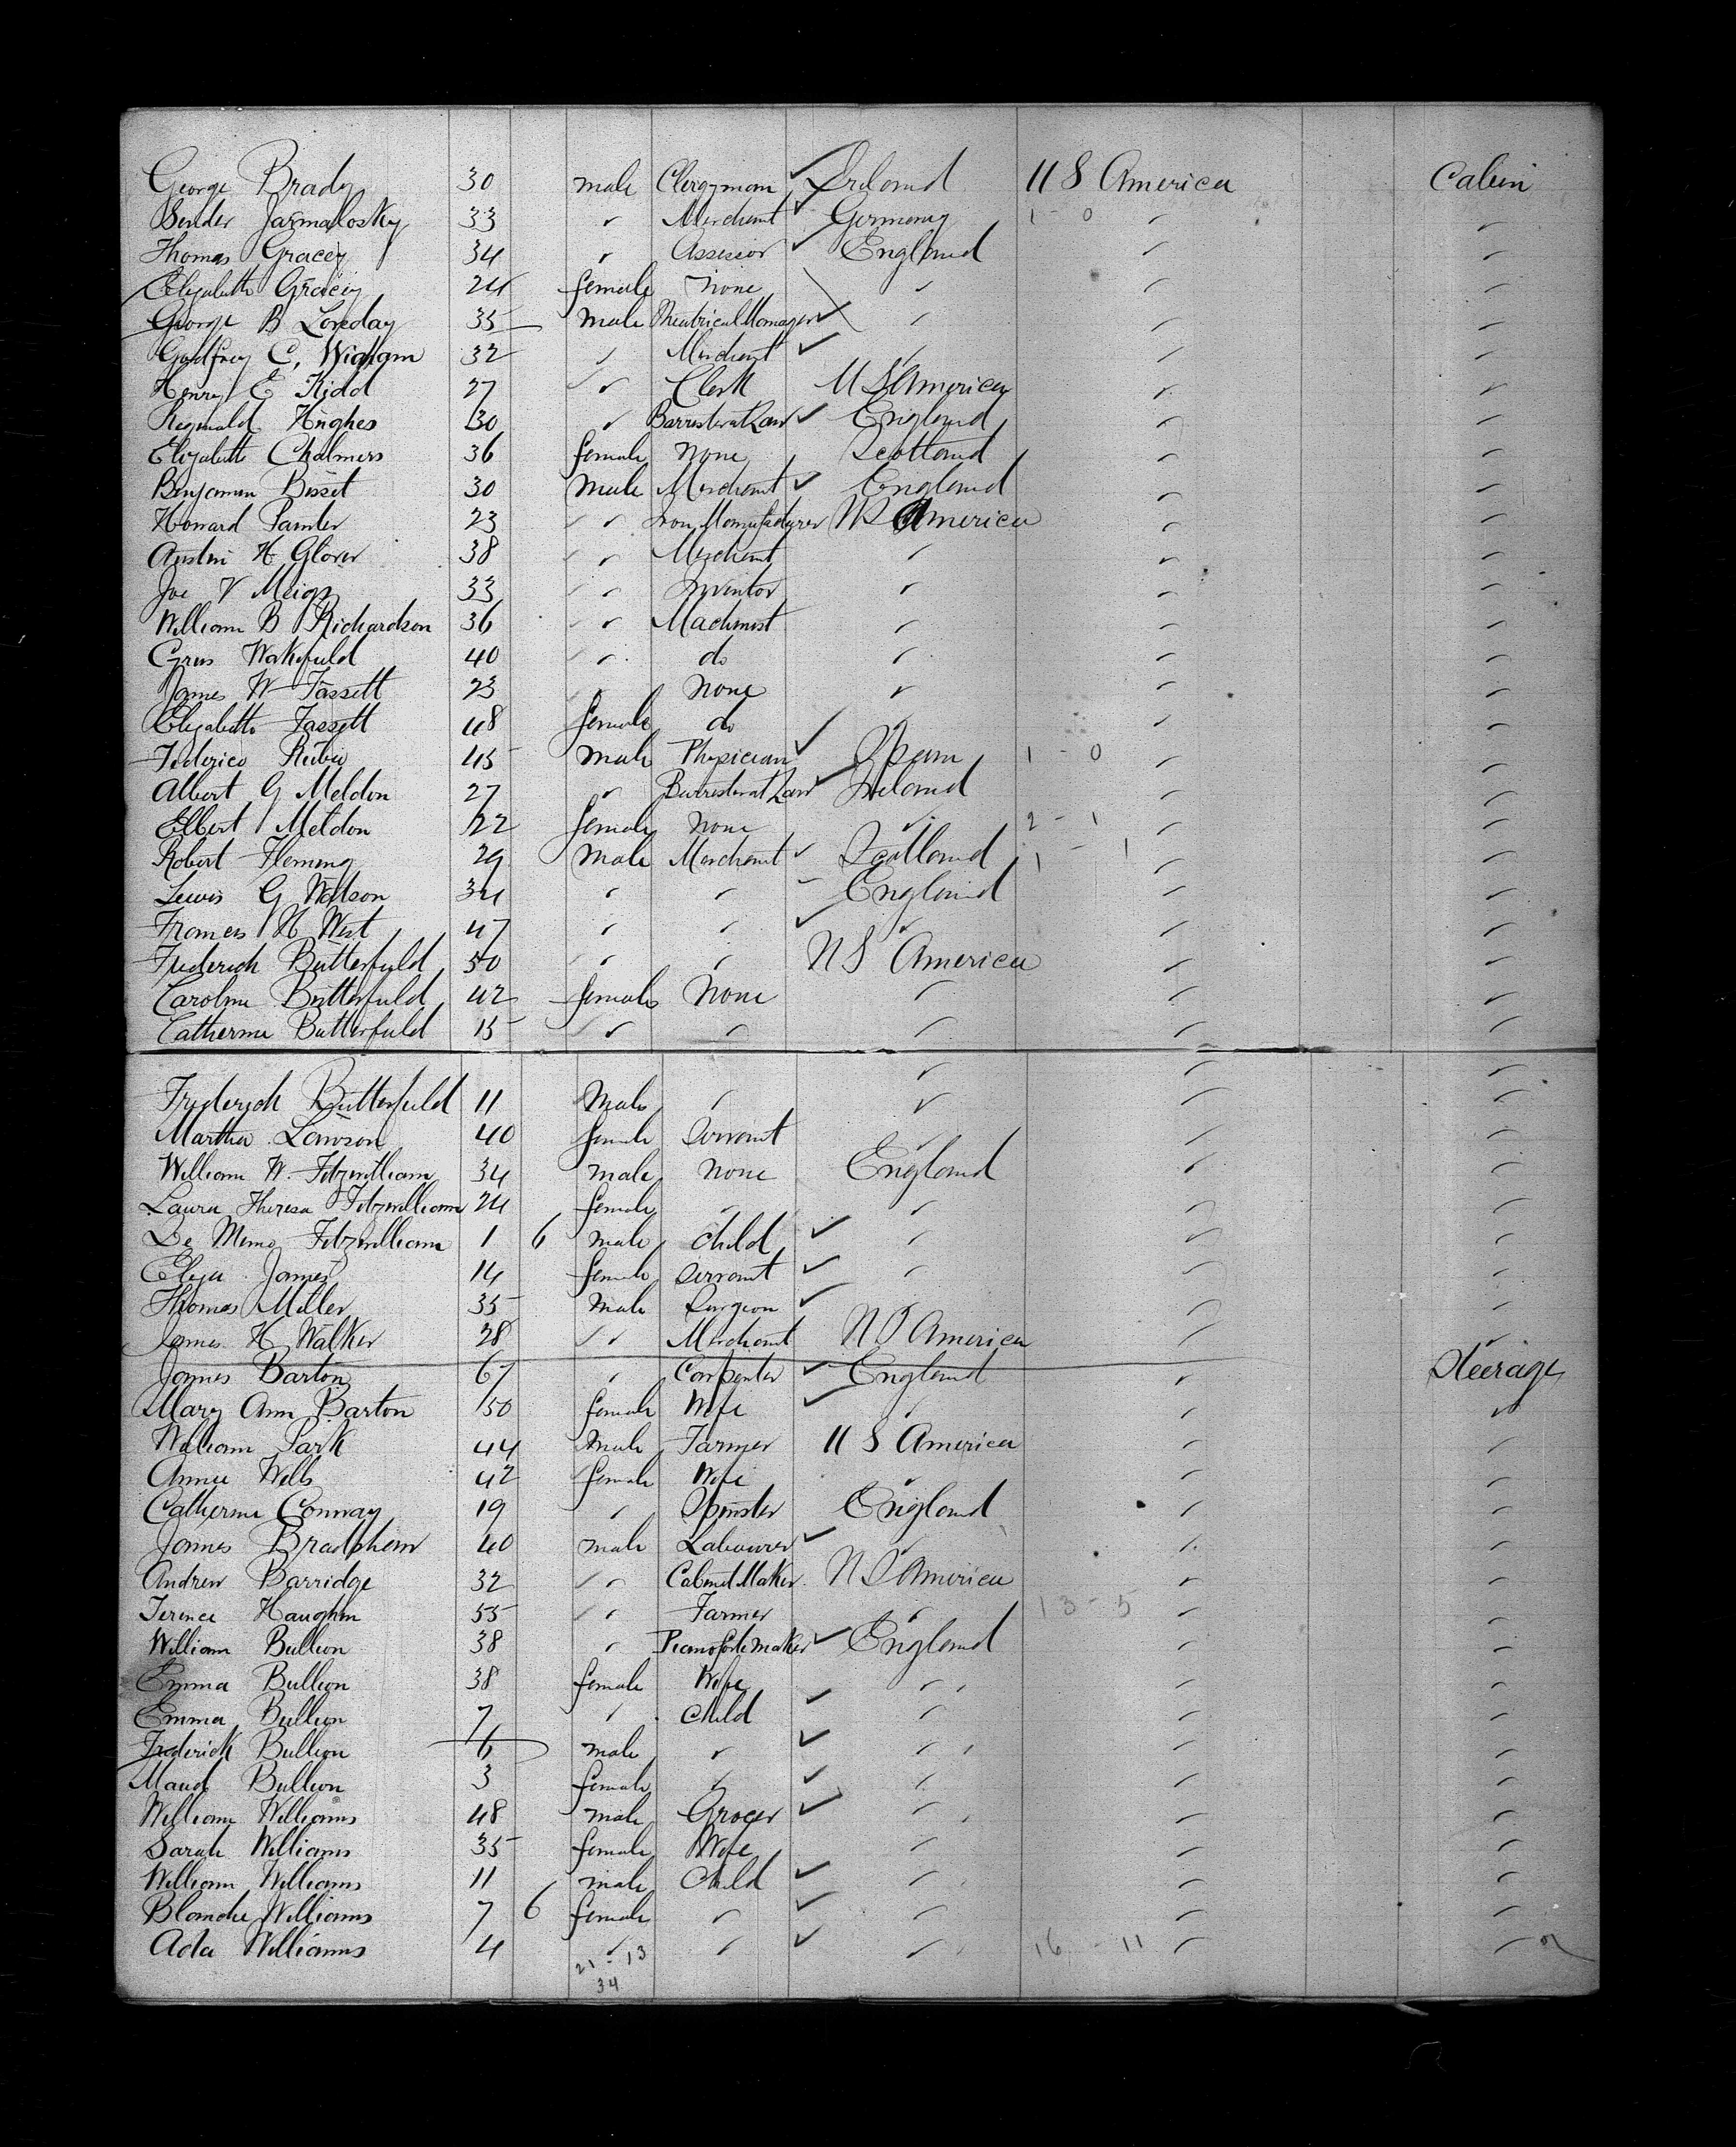 George Brady 30 male Clergyman ✓ Ireland U S America Cabin
Sender Jarmalosky 33 " Merchant ✓ Germany 1 - 0 " "
Thomas Gracey 34 " Assessor ✓ England " "
Elizabeth Gracey 24 female none " " "
George B Loveday 35 male Theatrical Manager ✓ " " "
Godfrey C. Wigham 32 " Merchant ✓ " " "
Henry E Kidd 27 " Clerk U S America " "
Reginald Hughes 30 " Barrester at Law ✓ England " "
Elizabeth Chalmers 36 female none Scotland " "
Benjamin Bisset 30 male Merchant ✓ England " "
Howard 23 " Iron Manufacturer U S America " "
Austin H Glover 38 " Merchant " " "
Joe V Meigs 33 " Inventor " " "
William B Richardson 36 " Machinist " " "
Cyrus Wakefield 40 " do " " "
James W Fassett 23 " none " " "
Elizabeth Fassett 48 female do " " "
Federico Rubio 45 male Physician ✓ Spain 1 - 0 " "
Albert G Meldon 27 " Barrester at Law ✓ Ireland " "
Elbert Meldon 22 female none " 2 - 1 " "
Robert Fleming 29 male Merchant ✓ Scotland 1 - 1 " "
Lewis G Watson 34 " " England " "
Frances H West 47 " " ✓ " " "
Frederick Butterfield 50 " " U S America " "
Caroline Butterfield 42 female none " " "
Catherine Butterfield 15 " " " " "
Frederick Butterfield 11 male " " " "
Martha Lawson 40 female Servant " " "
William W. Fitzwilliam 34 male none England " "
Laura Theresa Fitzwilliam 24 female " " " "
De Mimo Fitzwilliam 1 6 male child ✓ " " "
Eliza James 14 female Servant ✓ " " "
Thomas Miller 35 male Surgeon ✓ " " "
James H Walker 28 " Merchant U S America " "
James Barton 67 " Carpenter ✓ England " Steerage
Mary Ann Barton 50 female Wife ✓ " " "
William Park 44 male Farmer U S America " "
Annie Wells 42 female Wife " " "
Catherine Conway 19 " Spinster England " "
James Bradshaw 40 male Labourer ✓ " " "
Andrew Barridge 32 " Cabinet Maker U S America " "
Terence Haughin 55 " Farmer " 13 - 5 " "
William Bullion 38 " Pianoforte maker ✓ England " "
Emma Bullion 38 female Wife " " "
Emma Bullion 7 " child ✓ " " "
Frederick Bullion 6 male " ✓ " " "
Maud Bullion 3 female " ✓ " " "
William Williams 48 male Grocer ✓ " " "
Sarah Williams 35 female Wife " " "
William Williams 11 male child ✓ " " "
Blanche Williams 7 6 female " ✓ " " "
Ada Williams 4 " " ✓ " 16 - 11 " "
21 - 13
34